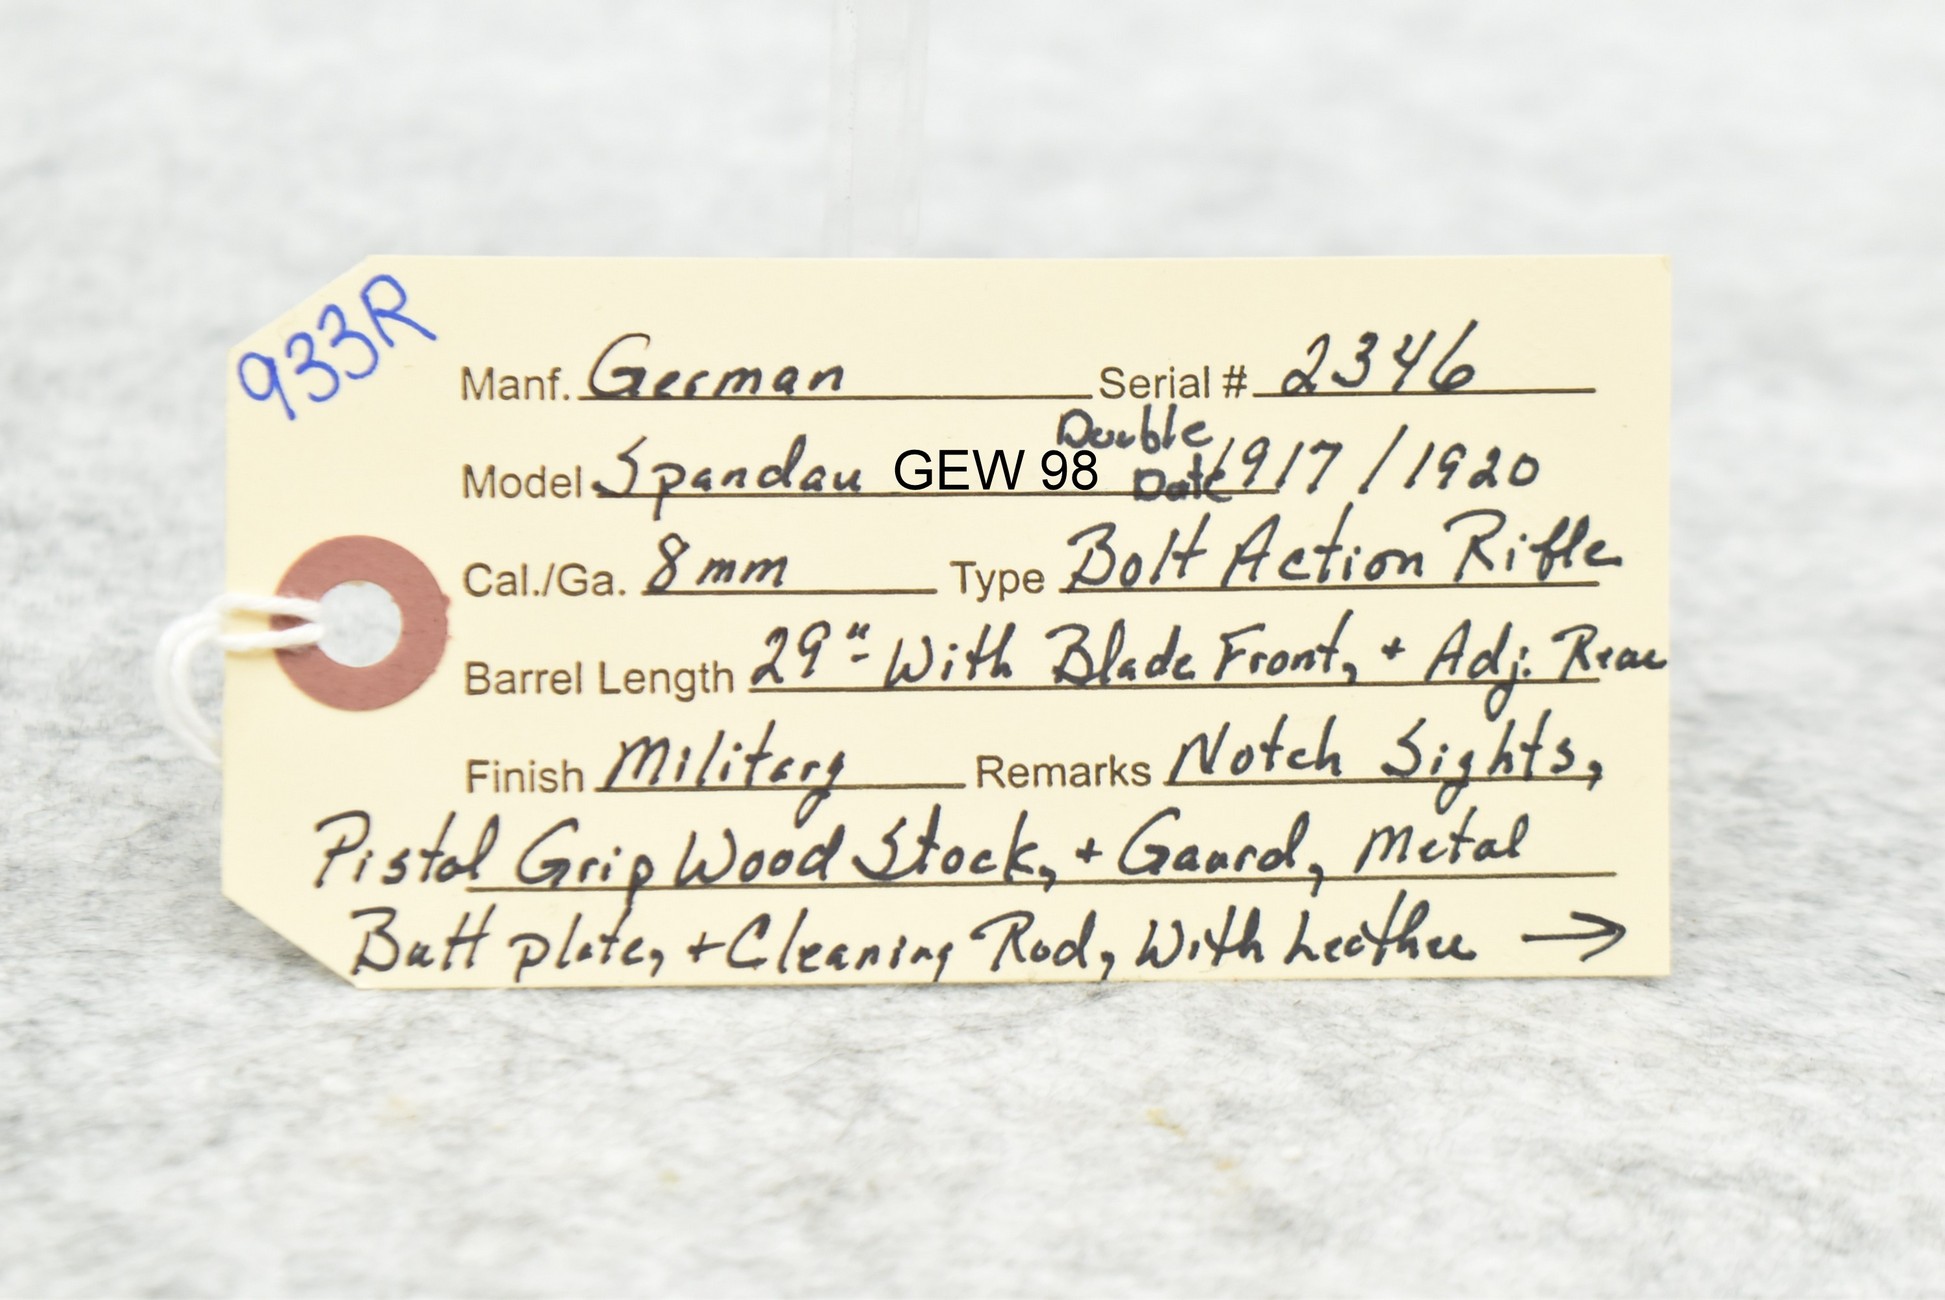 933R
Manf. German Serial # 2346
Double
Model Spandau GEW 98 Date 1917/1920
Cal./Ga. 8mm Type Bolt Action Rifle
Barrel Length 29"- With Blade Front, + Adj. Rear
Finish Military Remarks Notch Sights,
Pistol Grip Wood Stock, + Gaurd, Metal
Butt plate, + Cleaning Rod, With Leather →